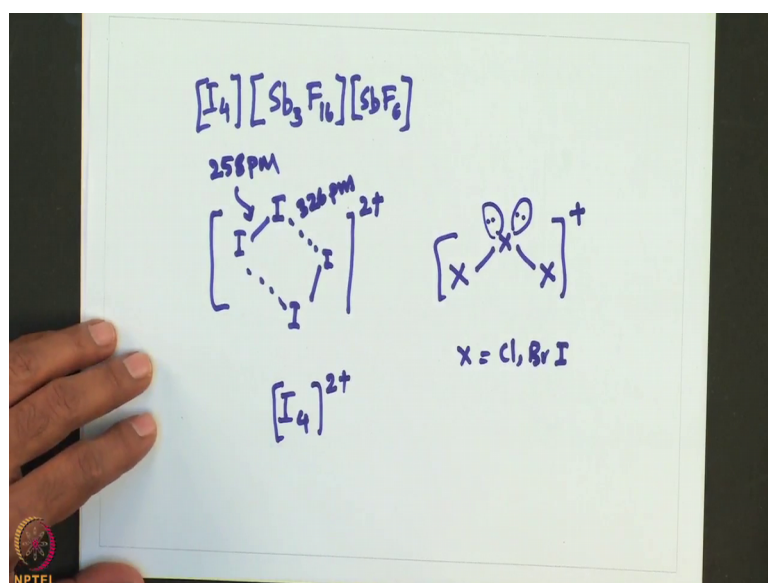 [I₄][Sb₃F₁₆][SbF₆]
258PM
326 pm
[I I I I]²⁺
[X X X]⁺
X = Cl, Br I
[I₄]²⁺
NPTEL